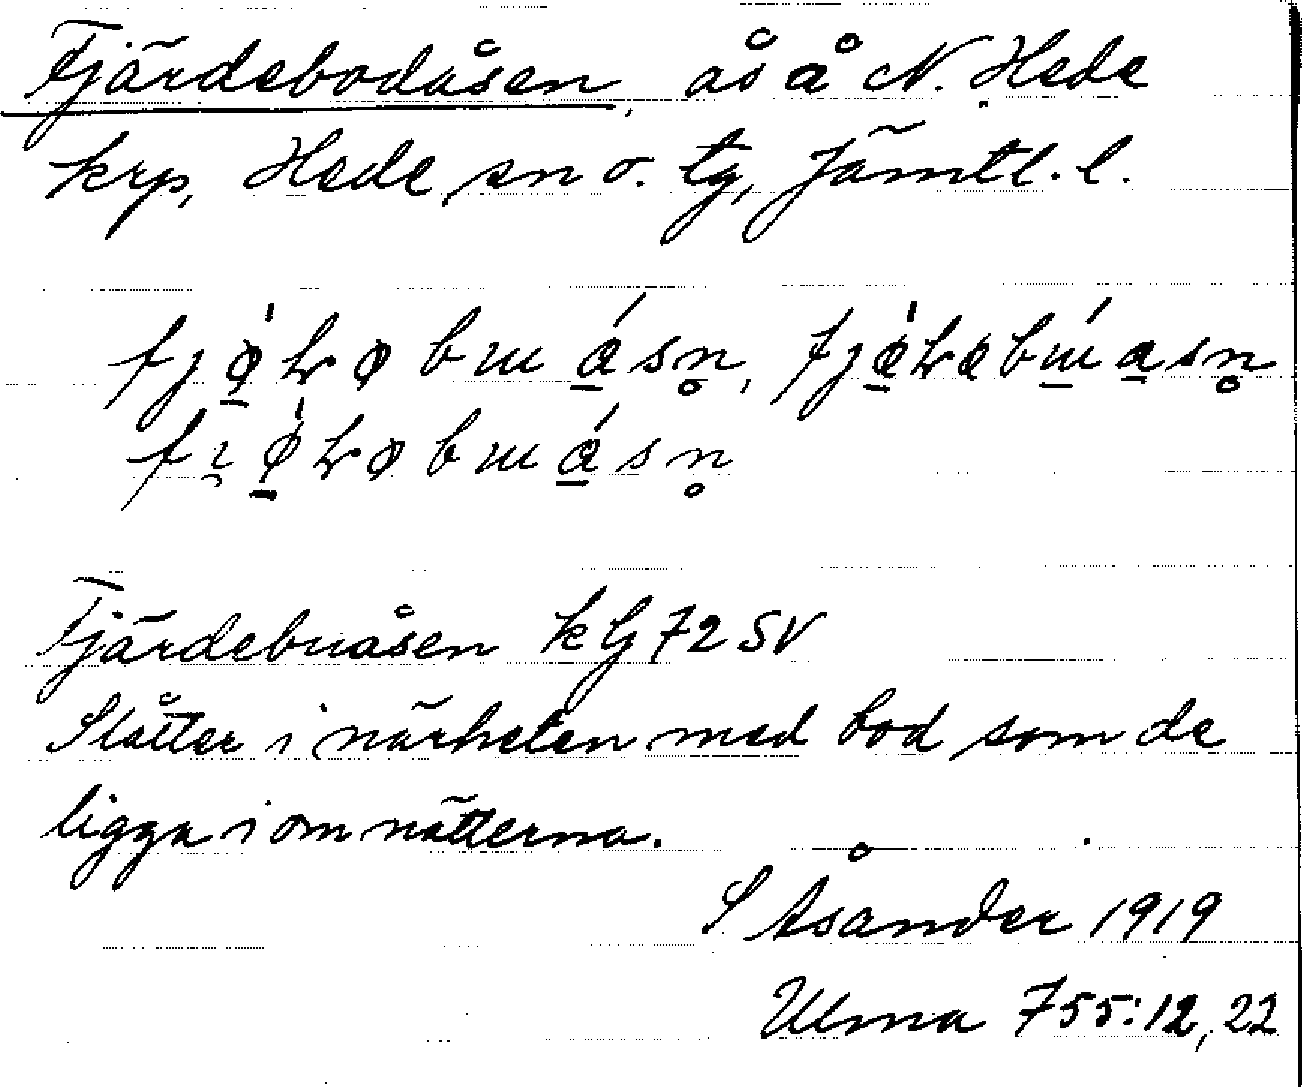 Fjärdebodåsen, ås å N. Hede
krp, Hede sn o. tg, Jämtl. l.
Fjärdebuåsen kG 72 SV
Slåtter i närheten med bod som de
ligga i om nätterna.
S Åsander 1919
Ulma 755:12, 22